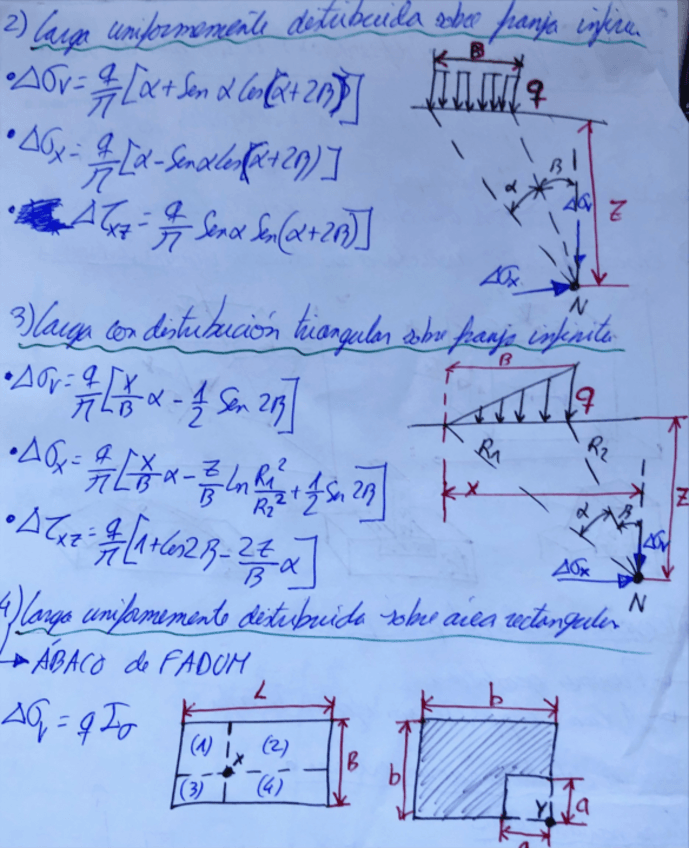 2) Carga uniformemente distribuida sobre franja infini
B
• Δσv = q/π [α + Sen α Cos(α+2β)]
q
• Δσx = q/π [α - Sen α Cos(α+2β)]
β
α
Δσv
Z
• Δτxz = q/π Sen α Sen(α+2β)]
Δσx
N
3) Carga con distribución triangular sobre franja infinita
B
• Δσv = q/π [x/B α - 1/2 Sen 2β]
q
R1
R2
• Δσx = q/π [x/B α - z/B Ln R1²/R2² + 1/2 Sen 2β]
x
Z
α
β
• Δτxz = q/π [1 + Cos 2β - 2z/B α]
Δσv
Δσx
N
4) Carga uniformemente distribuida sobre área rectangular
→ ÁBACO de FADUM
L
b
Δσv = q Iσ
(1) (2)
x
B
b
(3) (4)
Y
a
a